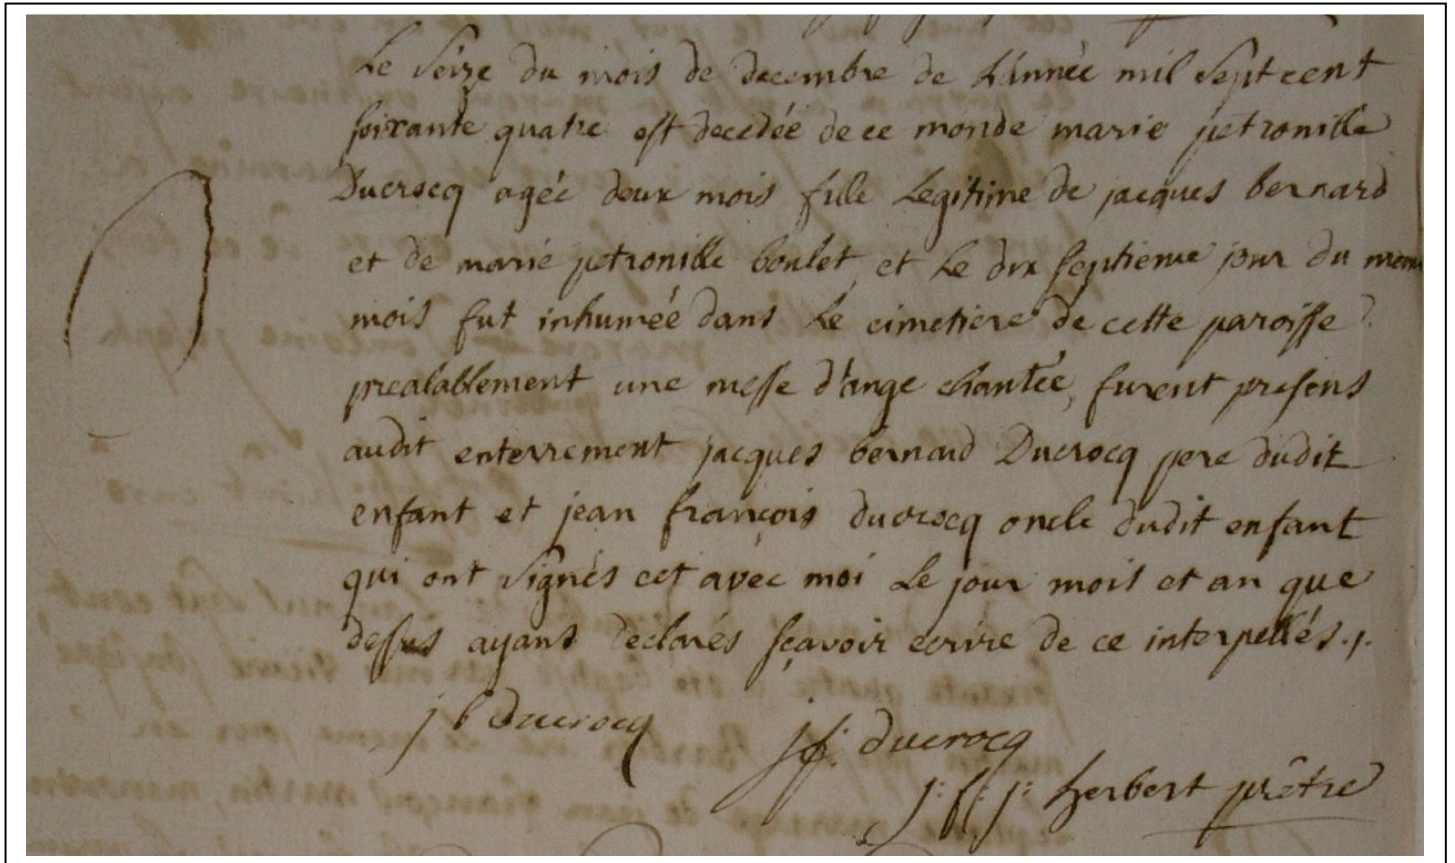 Le seize du mois de decembre de L'année mil Sept cent
soixante quatre est decedée de ce monde marie petronille
Ducrocq agéé deux mois fille Legitime de jacques bernard
et de marie petronille boulet, et Le dix septieme jour du meme
mois fut inhumée dans Le cimetiere de cette paroisse
prealablement une messe d'ange chantée, furent presens
audit enterrement jacques bernard Ducrocq pere dudit
enfant et jean françois ducrocq oncle dudit enfant
qui ont signés cet avec moi Le jour mois et an que
dessus ayans declarés sçavoir ecrire de ce interpellés ./.
j b ducrocq
j f: ducrocq
j: f: j: herbert prêtre